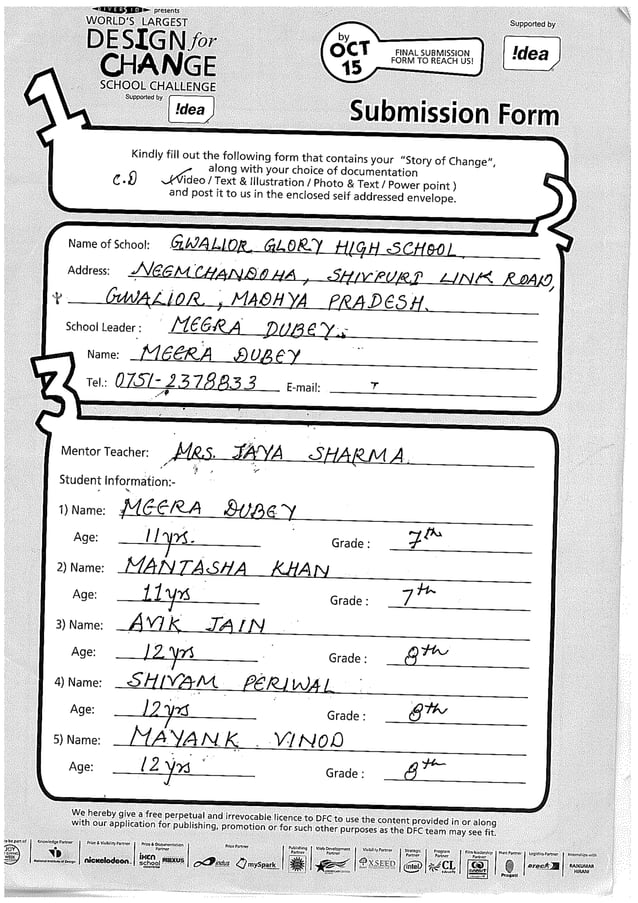 presents
WORLD'S LARGEST
DESIGN for
CHANGE
SCHOOL CHALLENGE
Supported by
!dea
by
OCT
15
FINAL SUBMISSION
FORM TO REACH US!
Supported by
!dea
Submission Form
1
Kindly fill out the following form that contains your "Story of Change",
along with your choice of documentation
C.D (Video / Text & Illustration / Photo & Text / Power point )
and post it to us in the enclosed self addressed envelope.
2
Name of School: GWALIOR GLORY HIGH SCHOOL
Address: NEEMCHANDOHA, SHIVPURI LINK ROAD,
GWALIOR, MADHYA PRADESH.
School Leader : MEERA DUBEY
Name: MEERA DUBEY
Tel.: 0751-2378833 E-mail:
3
Mentor Teacher: MRS. JAYA SHARMA
Student Information:-
1) Name: MEERA DUBEY
Age: 11yrs. Grade : 7th
2) Name: MANTASHA KHAN
Age: 11yrs Grade : 7th
3) Name: AVIK JAIN
Age: 12yrs Grade : 8th
4) Name: SHIVAM PERIWAL
Age: 12yrs Grade : 8th
5) Name: MAYANK VINOD
Age: 12yrs Grade : 8th
We hereby give a free perpetual and irrevocable licence to DFC to use the content provided in or along
with our application for publishing, promotion or for such other purposes as the DFC team may see fit.
Knowledge Partner
Prize & Visibility Partner
nickelodeon
Prize & Documentation Partner
school
Prize Partner
indus
mySpark
Publishing Partner
Web Development Partner
Visibility Partner
XSEED
Strategic Partner
intel
Program Partner
CL
Print Partner
Pragati
Logistics Partner
Internships with
RAJKUMAR
HIRANI